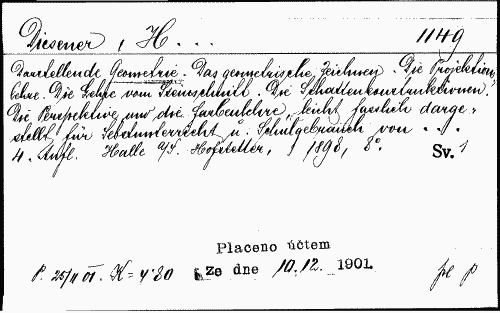 Diesener, H...
1149
Darstellende Geometrie. Das geometrische Zeichnen. Die Projektions-
lehre. Die Lehre vom Steinschnitt. Die Schattenkonstruktionen.
Die Perspektive und die Farbenlehre, leicht fasslich darge-
stellt für Selbstunterricht u. Schulgebrauch von ....
4. Aufl. Halle a/S. Hofstetter, 1898, 8°. Sv. 1
Placeno účtem
P. 25/11 01. K = 4·80 ze dne 10.12. 1901.